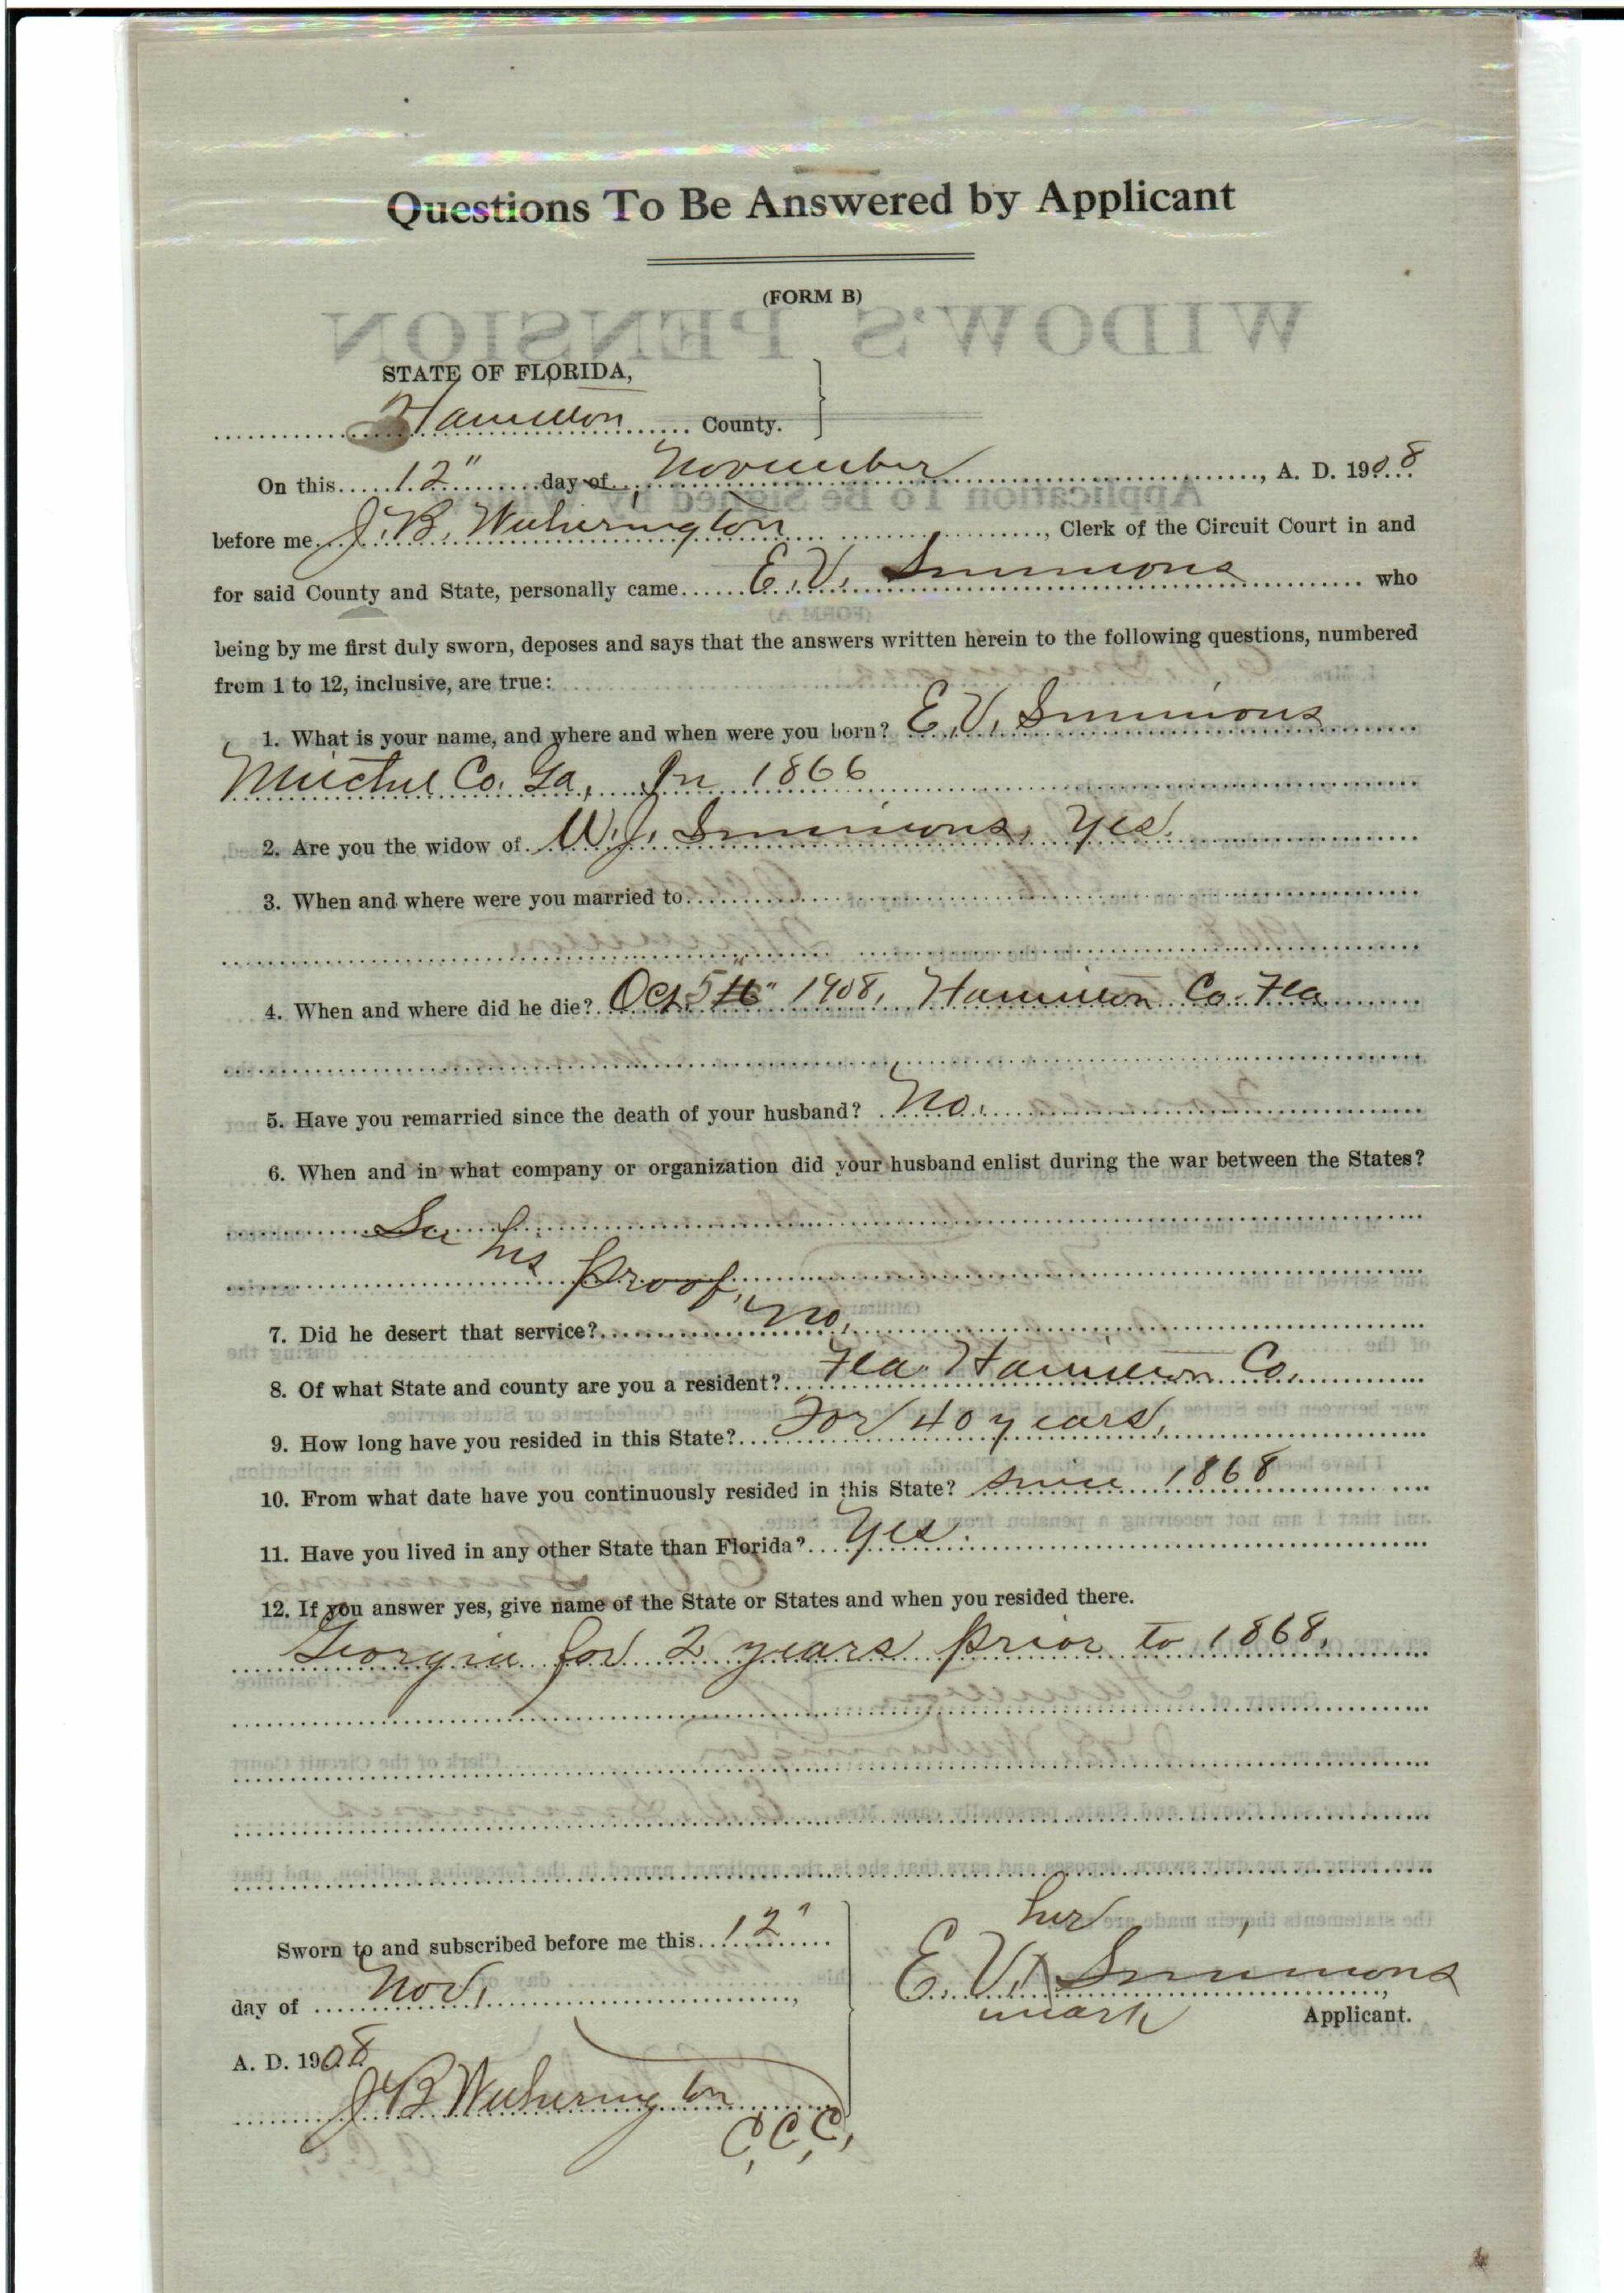 Questions To Be Answered by Applicant
(FORM B)
WIDOW'S PENSION
STATE OF FLORIDA,
Hamilton County.
On this 12" day of November, A. D. 1908
before me J. B. Witherington, Clerk of the Circuit Court in and
for said County and State, personally came E. V. Simmons who
being by me first duly sworn, deposes and says that the answers written herein to the following questions, numbered
from 1 to 12, inclusive, are true:
1. What is your name, and where and when were you born? E. V. Simmons
Mitchel Co. Ga, In 1866
2. Are you the widow of W. J. Simmons, Yes.
3. When and where were you married to
4. When and where did he die? Oct 5th 1908, Hamilton Co. Fla
5. Have you remarried since the death of your husband? No.
6. When and in what company or organization did your husband enlist during the war between the States?
See his
Proof,
7. Did he desert that service? No,
8. Of what State and county are you a resident? Fla. Hamilton Co.
9. How long have you resided in this State? For 40 years,
10. From what date have you continuously resided in this State? since 1868
11. Have you lived in any other State than Florida? Yes.
12. If you answer yes, give name of the State or States and when you resided there.
Georgia for 2 years prior to 1868,
Sworn to and subscribed before me this 12"
day of Nov,
A. D. 1908
J B Witherington
C, C, C,
her
E. V. X Simmons
mark
Applicant.